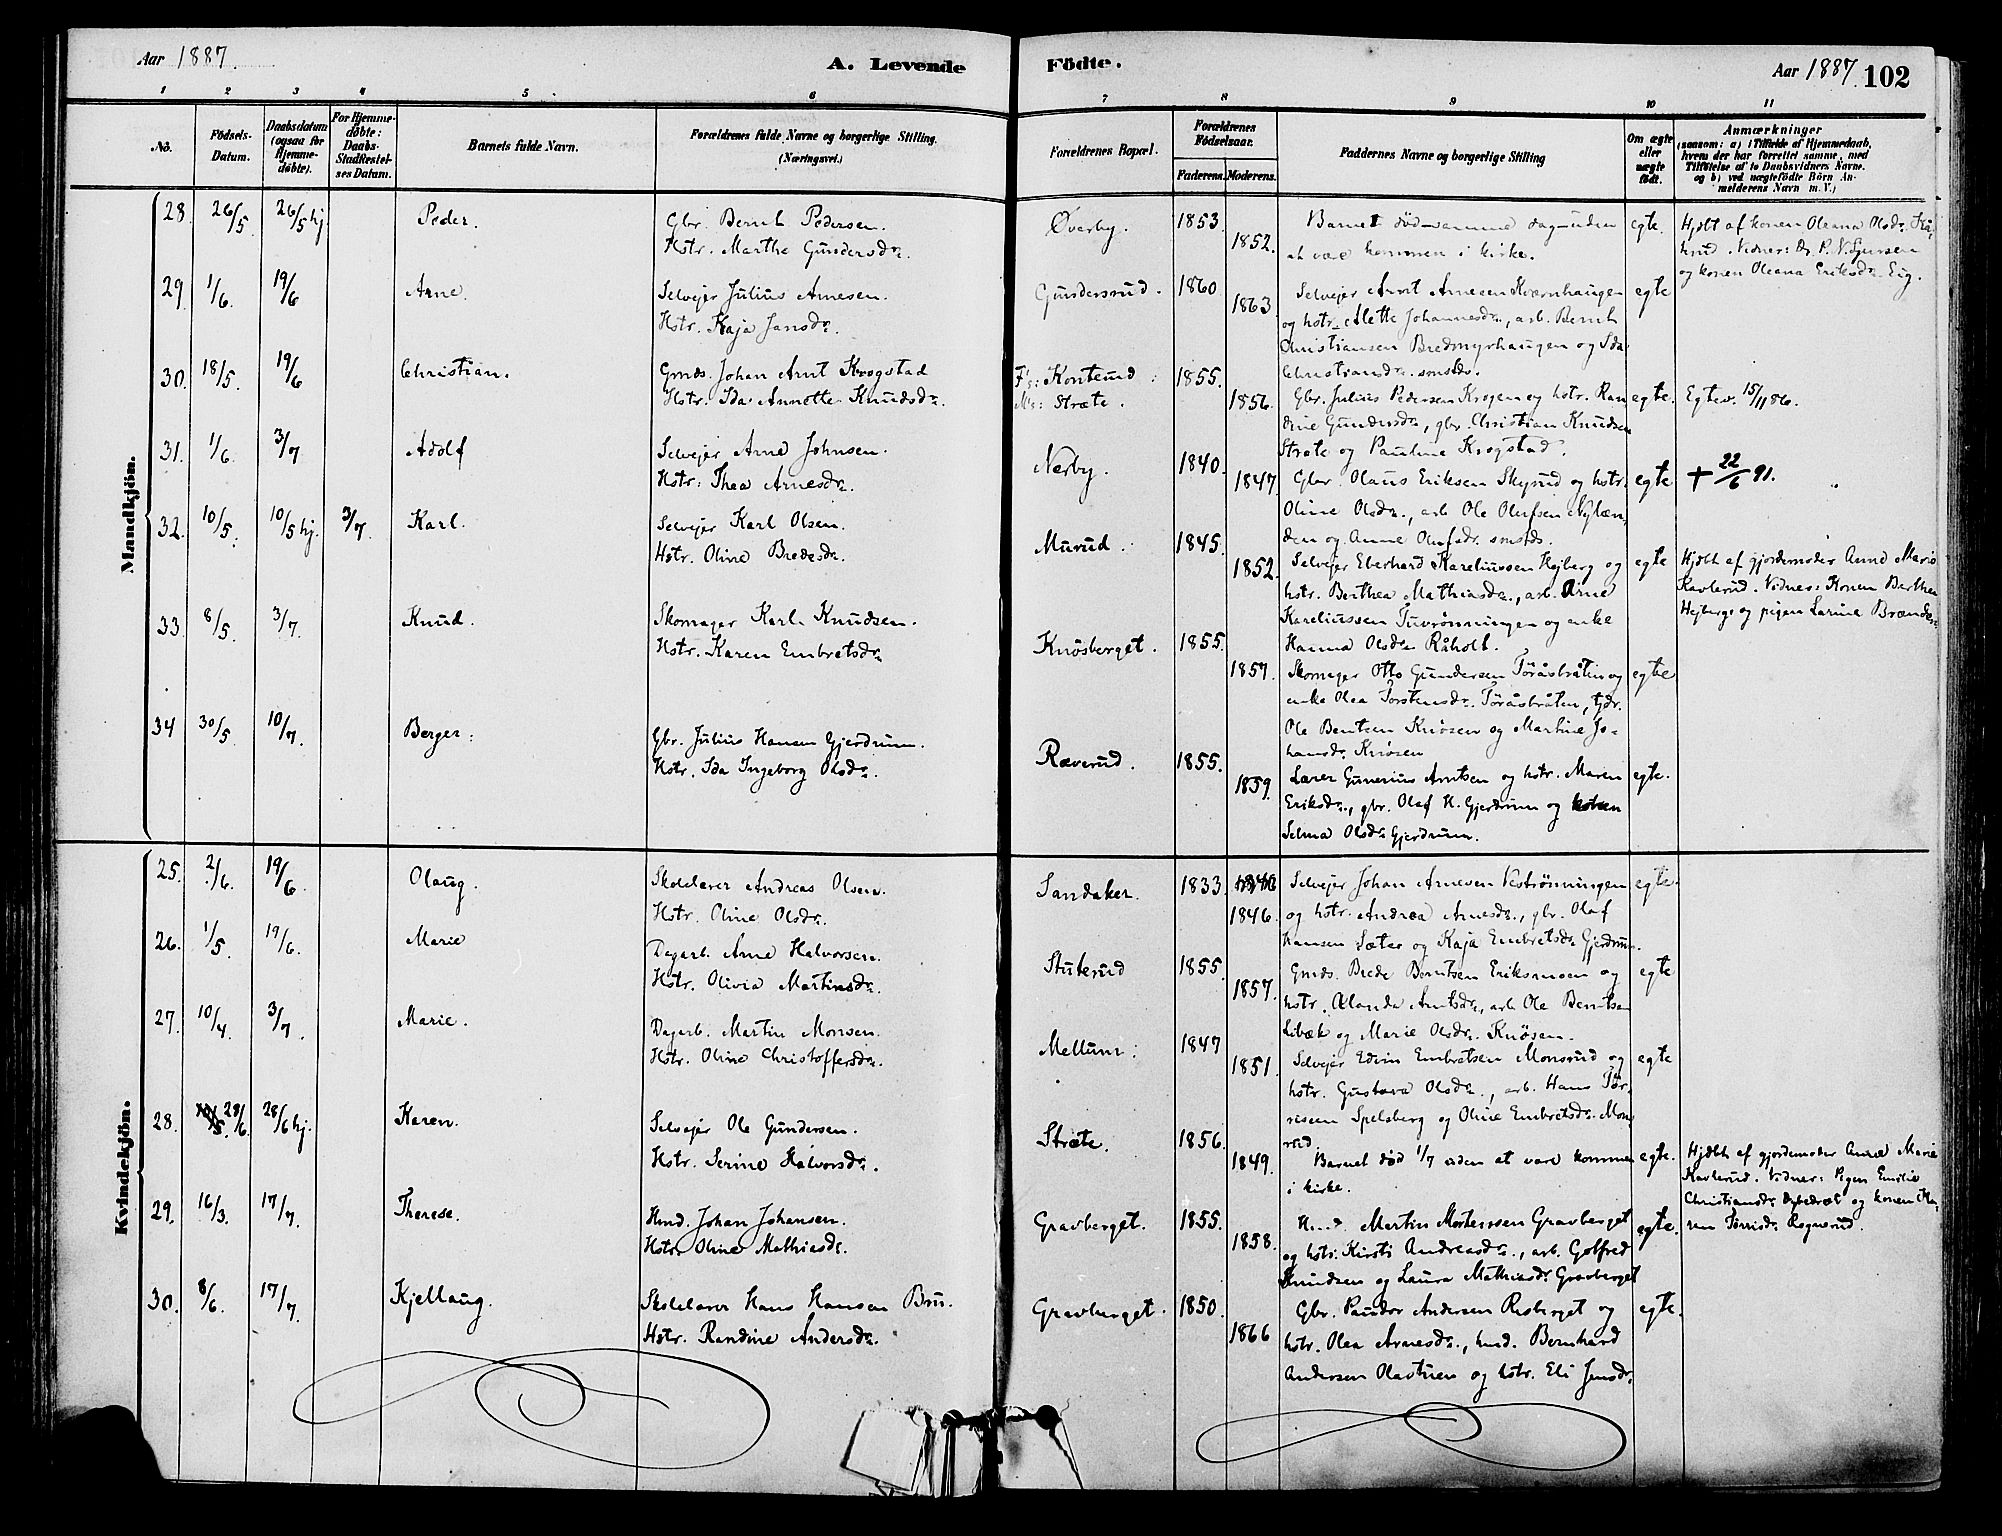 Aar 1887.
A. Levende
Födte.
Aar 1887. 102
1 2 3 4 5 6 7 8 9 10 11
No.
Födsels-Datum.
Daabsdatum (ogsaa for Hjemme-døbte).
For Hjemme-døbte: Daabs-Stadfæstel-ses Datum.
Barnets fulde Navn.
Forældrenes fulde Navne og borgerlige Stilling.
(Næringsvei.)
Forældrenes Bopæl.
Forældrenes Födselsaar.
Faderens. Moderens.
Faddernes Navne og borgerlige Stilling
Om ægte eller uægte født.
Anmærkninger
(saasom: a) i Tilfælde af Hjemmedaab,
hvem der har forrettet samme, med
Tilføielse af to Daabsvidners Navne.
og b) ved uægtefødte Börn An-
melderens Navn m. V.)
Mandkjön.
28. 26/5. 26/5 hj. Peder.
Gbr. Bernt Pedersen.
Hstr. Marthe Gundersdr.
Överby. 1853. 1852.
Barnet död samme dag uden
at være kommen i kirke.
egte.
Hjdbt af konen Oleana Olsdr.
Vidner: 
og konen Oleana Eriksdr. Eig.
29. 1/6. 19/6 Arne.
Selvejer Julius Arnesen.
Hstr. Kaja Jansdr.
Gundersrud. 1860 1863.
Selvejer Arnt Arnesen Kværnhaugen
og hstr. Alette Johannesdr., arb. Bernt
Christiansen Bredmyrhaugen og Ida
Christiansdr. smstds.
egte
30. 18/5. 19/6 Christian.
Gmds. Johan Arnt Krogstad
Hstr. Ida Annette Knudsdr.
F's: Konterud :
M's: Stræte.
1855. 1856.
Gbr. Julius Pedersen Krogen og hstr. Ran
dine Gundersdr., gbr. Christian Knudsen
Stræte og Pauline Krogstad.
egte.
Egtev. 15/11 86.
31. 1/6. 3/7 Adolf
Selvejer Arne Johnsen.
Hstr: Thea Arnesdr.
Nerby. 1840. 1847.
Gbr. Olaus Eriksen Skyrud og hstr.
Oline Olsdr., arb. Ole Olufsen Nylæn
den og Anne Olufsdr. smstds.
egte
+ 22/6 91.
32. 10/5. 10/5 hj. 3/7. Karl.
Selvejer Karl Olsen.
Hstr. Oline Bredesdr.
Murud. 1845. 1852.
Selvejer Eberhard Kareliussen Hejberg og
hstr. Berthea Mathiasdr., arb. Arne
Kareliussen Tuvrönningen og enke
Hanna Olsdr. Råholt.
egte
Hjdbt af gjordemoder Anne Marie
Kavlerud. Vidner: Konen Berthea
Hejberg og pigen Larine
33. 8/5. 3/7. Knud.
Skomager Karl Knudsen.
Hstr. Karen Embretsdr.
Knösberget. 1855. 1857.
Skomager Otto Gundersen Töråsbråten og
enke Olea Torstensdr. Töråsbråten, tjdr.
Ole Bentsen Knösen og Martine Jo-
hansdr. Knösen
egte
34 30/5. 10/7. Berger.
Gbr. Julius Hansen Gjerdrum.
Hstr. Ida Ingeborg Olsdr.
Ræverud. 1855. 1859.
Lærer Gunerius Arntsen og hstr. Maren
Eriksdr., gbr. Olaf H. Gjerdrum og konen
Selma Olsdr. Gjerdrum.
egte.
Kvindekjön.
25. 2/6. 19/6 Olaug.
Skolelærer Andreas Olsen.
Hstr. Oline Olsdr.
Sandaker. 1833. 1846.
Selvejer Johan Arnesen Veströnningen
og hstr. Andrea Arnesdr., gbr. Olaf
Hansen Sæter og Kaja Embretsdr. Gjerdrum.
egte.
26. 1/5. 19/6. Marie
Dagarb. Arne Halvorsen.
Hstr. Olivia Martinsdr.
Stuterud 1855. 1857.
Gmds. Brede Berntsen Eriksmoen og
hstr. Olanda Arntsdr., arb. Ole Berntsen
Libæk og Marie Olsdr. Knösen.
egte
27. 10/4. 3/7. Marie.
Dagarb. Martin Monsen.
Hstr. Oline Christoffersdr.
Mellum: 1847 1851.
Selvejer Edvin Embretsen Monsrud og
hstr. Gustava Olsdr., arb. Hans Tör-
risen Spelsberg og Oline Embretsdr. Mons
rud.
egte
28. 28/6. 28/6 hj. Karen.
Selvejer Ole Gundersen.
Hstr. Serine Halvorsdr.
Stræte. 1856. 1849.
Barnet död 1/7 uden at være kommen
i kirke.
egte.
Hjdbt af gjordemoder Anne Marie
Kavlerud. Vidner: Pigen Emilie
Christiansdr. og konen Ka-
ren Törrisdr. Rognerud.
29. 16/3. 17/7. Therese.
Hmd. Johan Johansen.
Hstr. Oline Mathiasdr.
Gravberget. 1855. 1858.
Hmd. Martin Mortensen Gravberget
og hstr. Kirsti Andreasdr., arb. Golfred
Knudsen og Laura Mathiasdr. Gravberget
egte.
30. 8/6. 17/7. Kjellaug.
Skolelærer Hans Hansen Bru.
Hstr. Randine Andersdr.
Gravberget. 1850. 1866
Gbr. Paudor Andersen Risberget og
hstr. Olea Arnesdr., hmd. Bernhard
Andersen og hstr. Eli Jensdr.
egte.